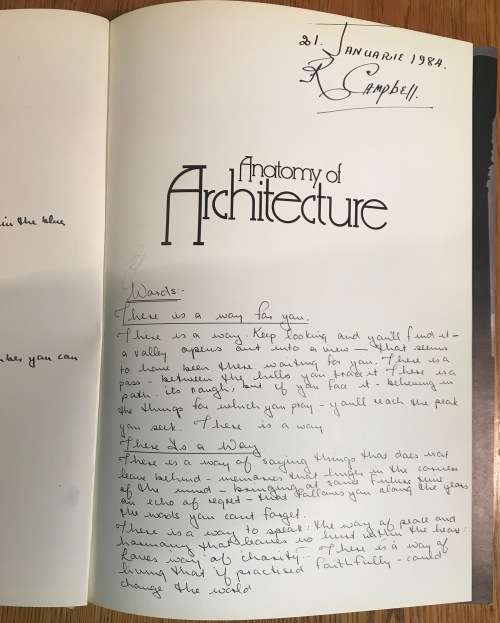 in the blue
mber you can
21. JANUARIE 1984.
R Campbell.
Anatomy of
Architecture
Words:-
There is a way for you.
There is a way. Keep looking and you'll find it -
a valley opens out into a view - that seems
to have been there waiting for you. There is a
pass - between the hills you trace it There is a
path. its rough, but if you face it - believing in
the things for which you pray - you'll reach the peak
you seek. There is a way
There Is a Way
There is a way of saying things that does not
leave behind - memories that linger in the corners
of the mind - bringing at some future time
an echo of regret - that follows you along the years
the words you cant forget.
There is a way to speak: the way of peace and
harmony that leaves no hurt within the heart:
Loves way of charity - There is a way of
living that if practised faithfully - could
change the world